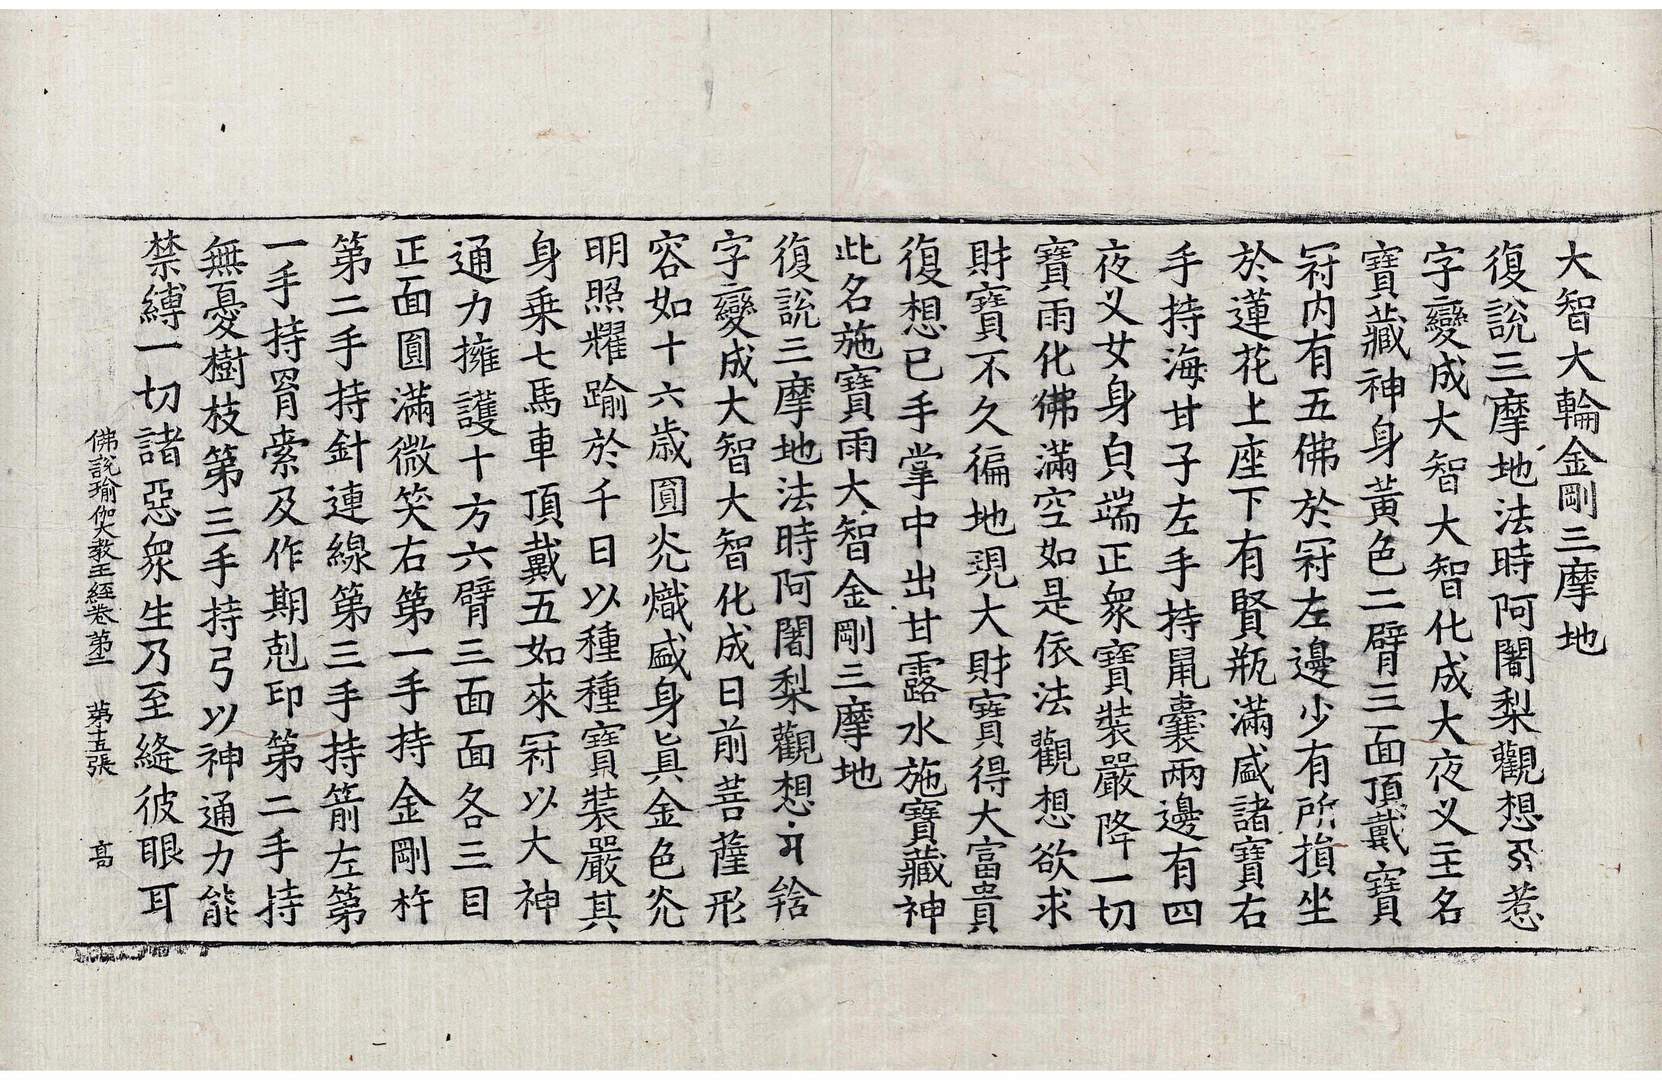 大智大輪金剛三摩地
復說三摩地法時阿闍梨觀想惹
字變成大智大智化成大夜叉主名
寶藏神身黃色二臂三面頂戴寶
冠內有五佛於冠左邊少有所損坐
於蓮花上座下有賢瓶滿盛諸寶右
手持海甘子左手持鼠囊兩邊有四
夜叉女身皃端正衆寶裝嚴降一切
寶雨化佛滿空如是依法觀想欲求
財寶不久徧地現大財寶得大富貴
復想已手掌中出甘露水施寶藏神
此名施寶雨大智金剛三摩地
復說三摩地法時阿闍梨觀想𤚥
字變成大智大智化成日前菩薩形
容如十六歲圓光熾盛身眞金色光
明照耀踰於千日以種種寶裝嚴其
身乘七馬車頂戴五如來冠以大神
通力擁護十方六臂三面面各三目
正面圓滿微笑右第一手持金剛杵
第二手持針連線第三手持箭左第
一手持羂索及作期剋印第二手持
無憂樹枝第三手持弓以神通力能
禁縛一切諸惡衆生乃至縫彼眼耳
佛說瑜伽大教王經卷第二 第十五張 髙